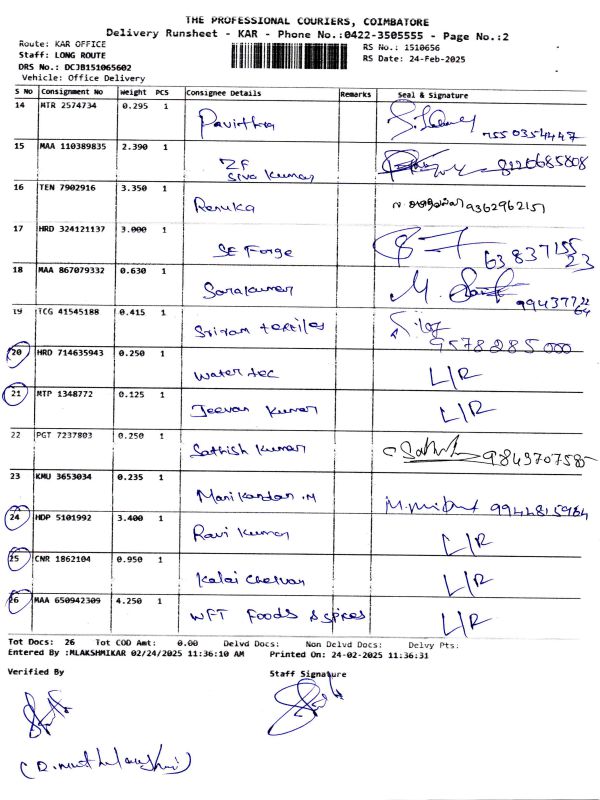 THE PROFESSIONAL COURIERS, COIMBATORE
Delivery Runsheet - KAR - Phone No.:0422-3505555 - Page No.:2
Route: KAR OFFICE RS No.: 1510656
Staff: LONG ROUTE RS Date: 24-Feb-2025
DRS No.: DCJB151065602
Vehicle: Office Delivery
S No Consignment No Weight PCS Consignee Details Remarks Seal & Signature
14 MTR 2574734 0.295 1 Pavithra 7550354447
15 MAA 110389835 2.390 1 ZF Siva Kumar 8220685808
16 TEN 7902916 3.350 1 Renuka 9362962151
17 HRD 324121137 3.000 1 SE Forge 63837155 23
18 MAA 867079332 0.630 1 Sarakumar M. 99437722 64
19 TCG 41545188 0.415 1 Sriram textiles 9578285000
20 HRD 714635943 0.250 1 Water tec L/R
21 MTP 1348772 0.125 1 Jeevan Kumar L/R
22 PGT 7237803 0.250 1 Sathish Kumar 9843707585
23 KMU 3653034 0.235 1 Manikandan .M 9944815964
24 HDP 5101992 3.400 1 Ravi Kumar L/R
25 CNR 1862104 0.950 1 Kalai Chelvan L/R
26 MAA 650942309 4.250 1 WFT Foods & spices L/R
Tot Docs: 26 Tot COD Amt: 0.00 Delvd Docs: Non Delvd Docs: Delvy Pts:
Entered By :MLAKSHMIKAR 02/24/2025 11:36:10 AM Printed On: 24-02-2025 11:36:31
Verified By Staff Signature